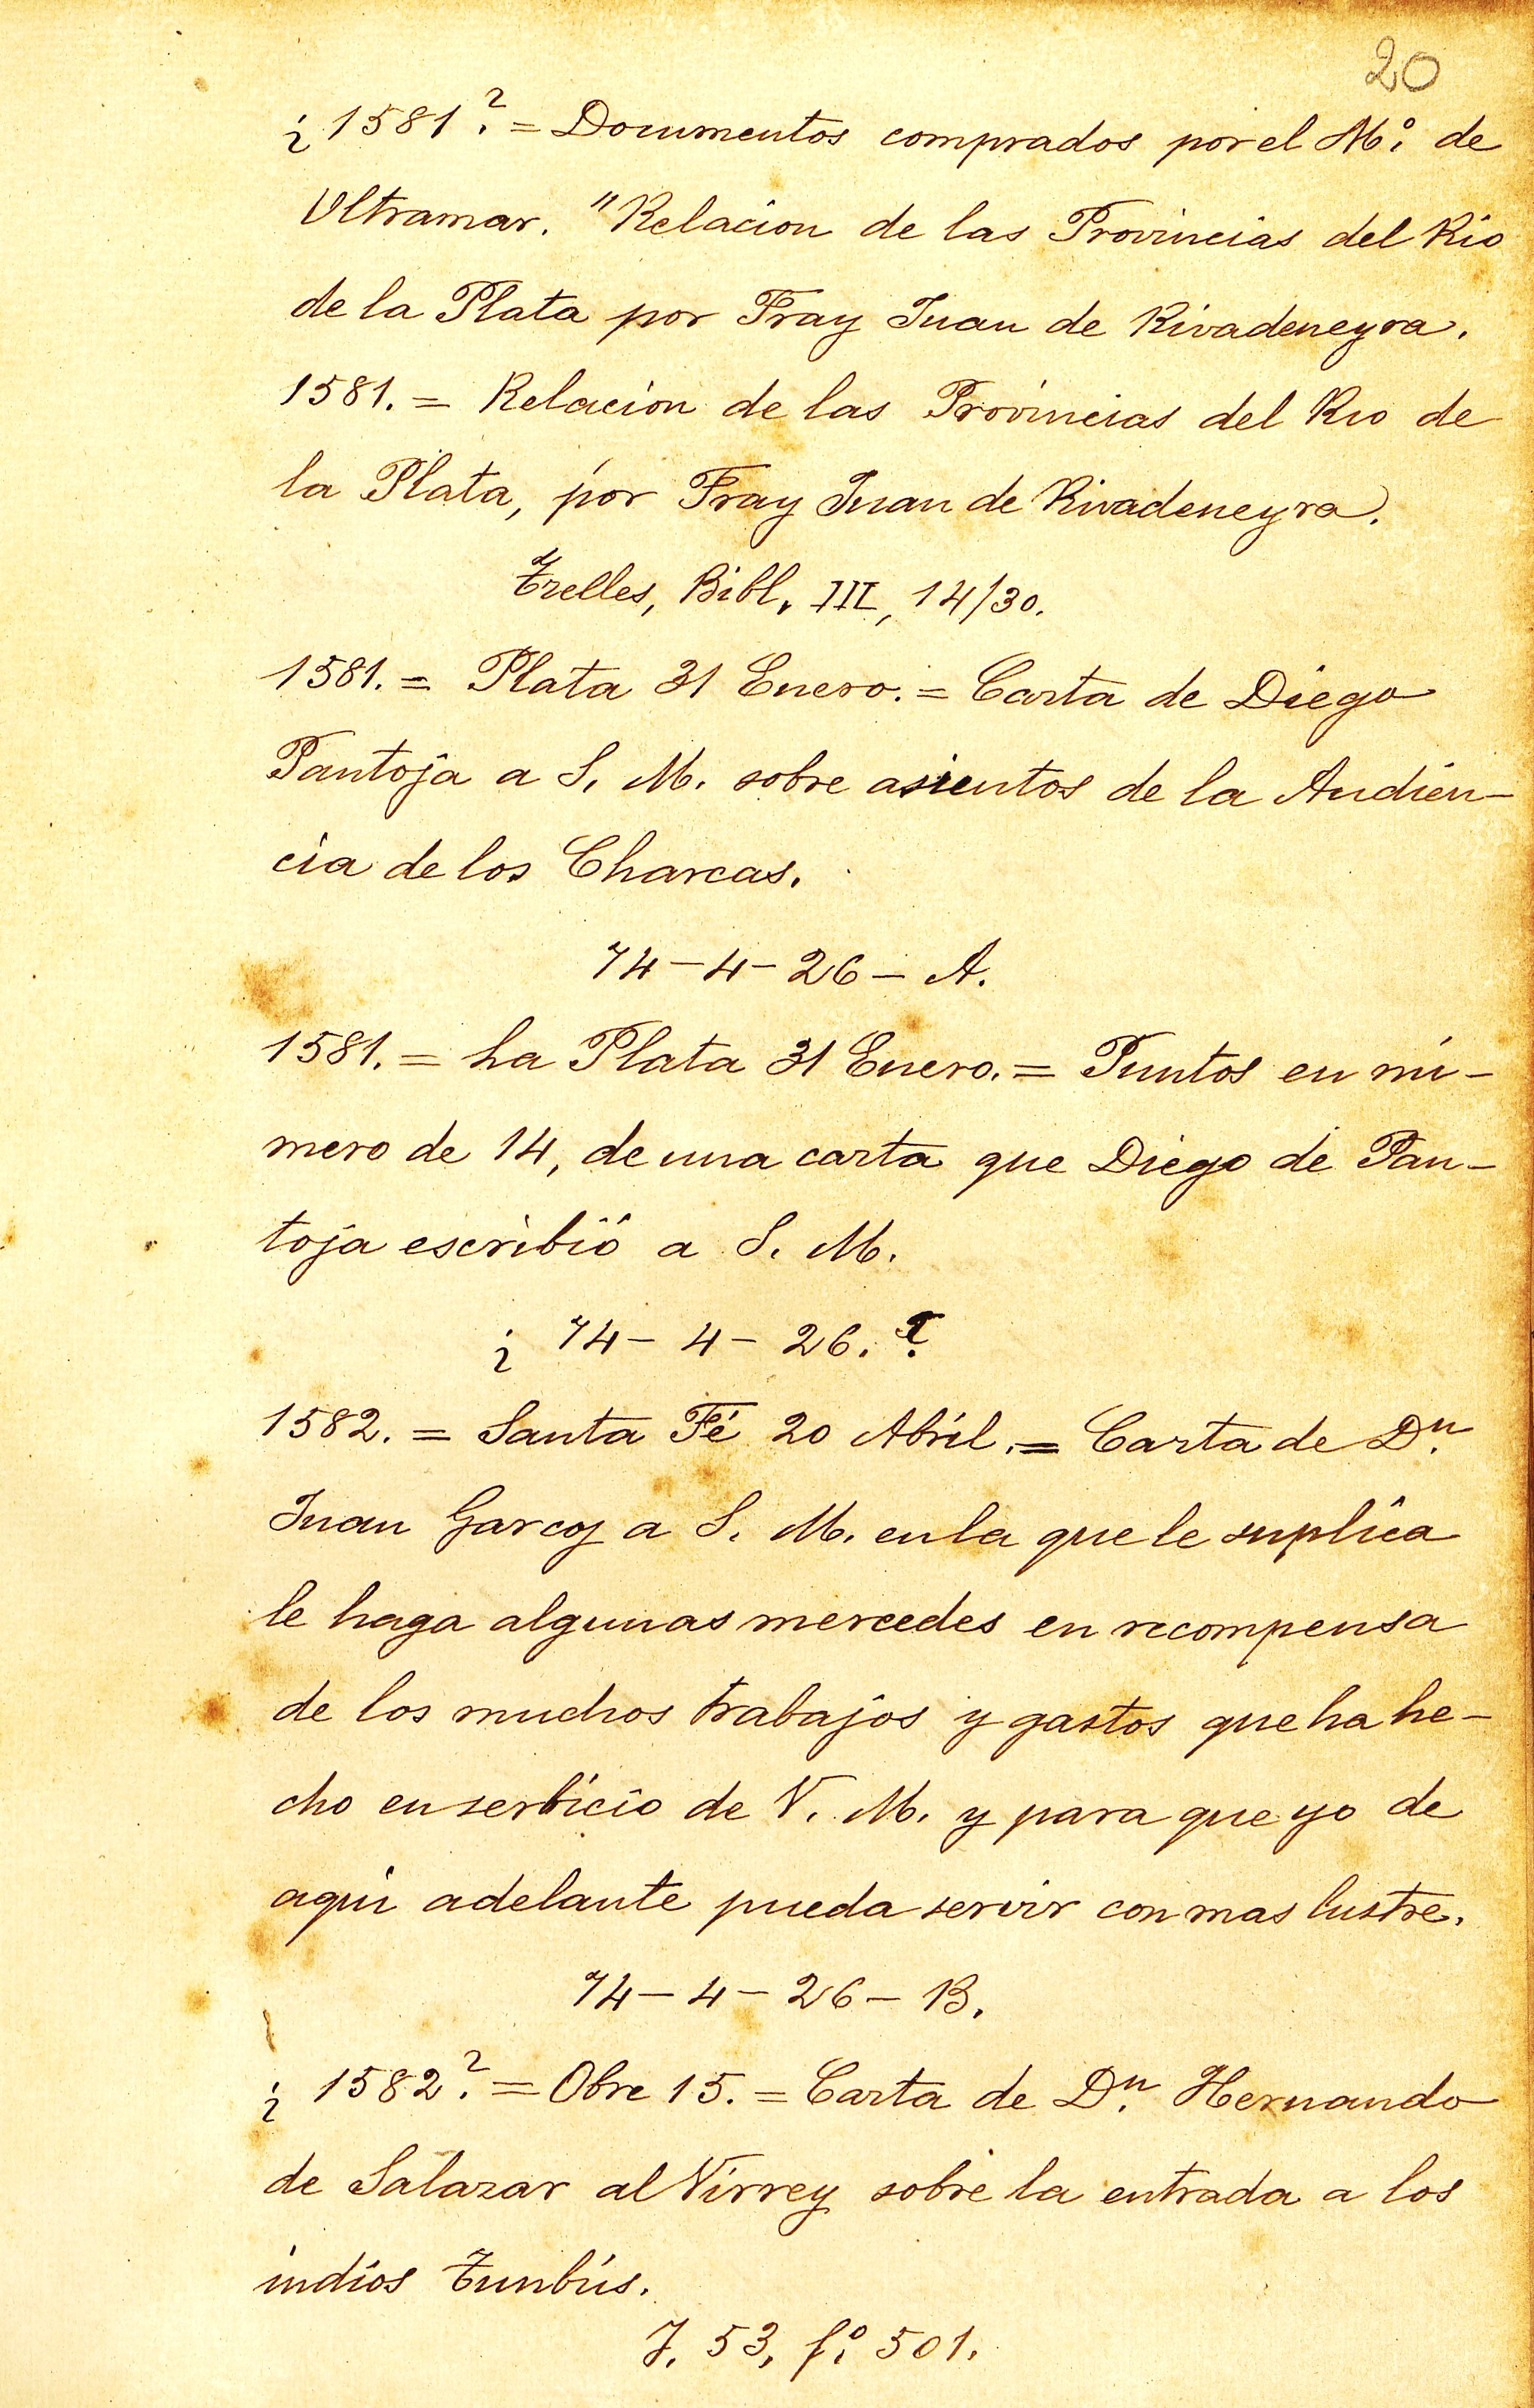 20
¿1581?. = Documentos comprados por el Mº. de
Ultramar. "Relacion de las Provincias del Rio
de la Plata por Fray Juan de Rivadeneyra.
1581. = Relacion de las Provincias del Rio de
la Plata, por Fray Juan de Rivadeneyra.
Trelles, Bibl. III, 14/30.
1581. = Plata 31 Enero. = Carta de Diego
Pantoja a S. M. sobre asientos de la Audien-
cia de los Charcas.
74-4-26-A.
1581. = La Plata 31 Enero. = Puntos en nú-
mero de 14, de una carta que Diego de Pan-
toja escribió a S. M.
¿74-4-26.?
1582. = Santa Fé 20 Abril. = Carta de Dⁿ.
Juan Garcoy a S. M. en la que le suplica
le haga algunas mercedes en recompensa
de los muchos trabajos y gastos que ha he-
cho en serbicio de V. M. y para que yo de
aqui adelante pueda servir con mas lustre.
74-4-26-B.
¿1582?. = Obre 15. = Carta de Dⁿ. Hernando
de Salazar al Virrey sobre la entrada a los
indios Tunbús.
T. 53, fº. 501.